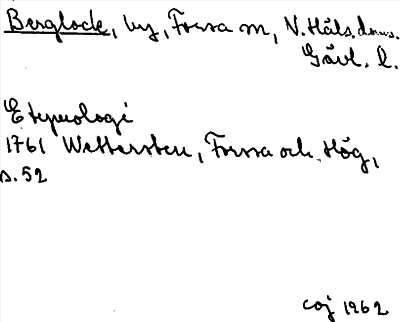 Berglock, by, Forssa sn, N. Häls. dms.
Gävl. l.
Etymologi
1761 Wettersten, Forssa och Hög,
s. 52
coj 1962